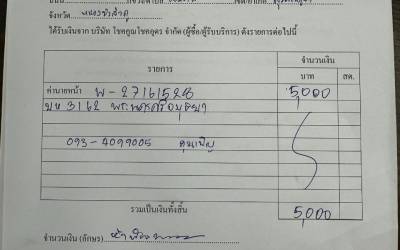 จังหวัด หนองบัวลำภู
ได้รับเงินจาก บริษัท โชคคูณโชคภูดร จำกัด (ผู้ซื้อ/ผู้รับบริการ) ดังรายการต่อไปนี้
รายการ จำนวนเงิน
บาท สต.
ค่านายหน้า พ-27161528 5,000
บห 3162 พระนครศรีอยุธยา
093-4099005 คุณเพ็ญ
รวมเป็นเงินทั้งสิ้น 5,000
จำนวนเงิน (อักษร) ห้าพันบาท